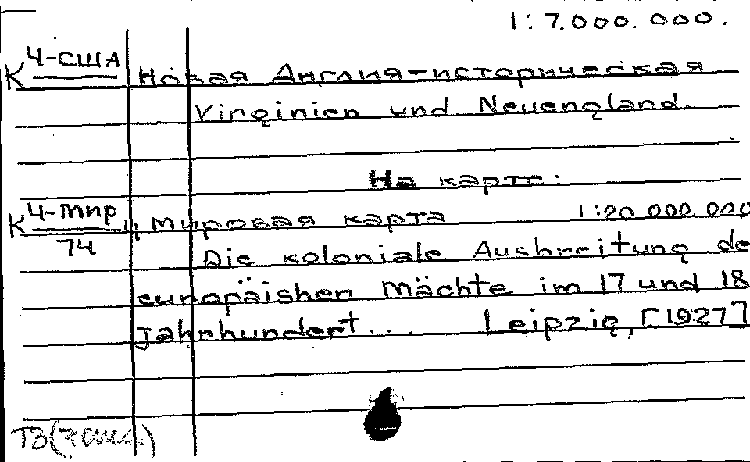 1:7.000.000.
К 4-США Новая Англия-историческая
Virginien und Neuengland.
На карте:
К 4-Мир 1:20 000 000
74 Мировая карта
Die koloniale Ausbreitung de
europäishen Mächte im 17 und 18
Jahrhundert... Leipzig, [1927]